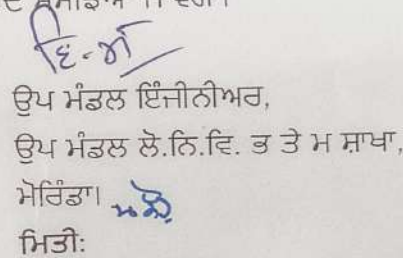 ਉਪ ਮੰਡਲ ਇੰਜੀਨੀਅਰ,
ਉਪ ਮੰਡਲ ਲੋ.ਨਿ.ਵਿ. ਭ ਤੇ ਮ ਸ਼ਾਖਾ,
ਮੋਰਿੰਡਾ।
ਮਿਤੀ: